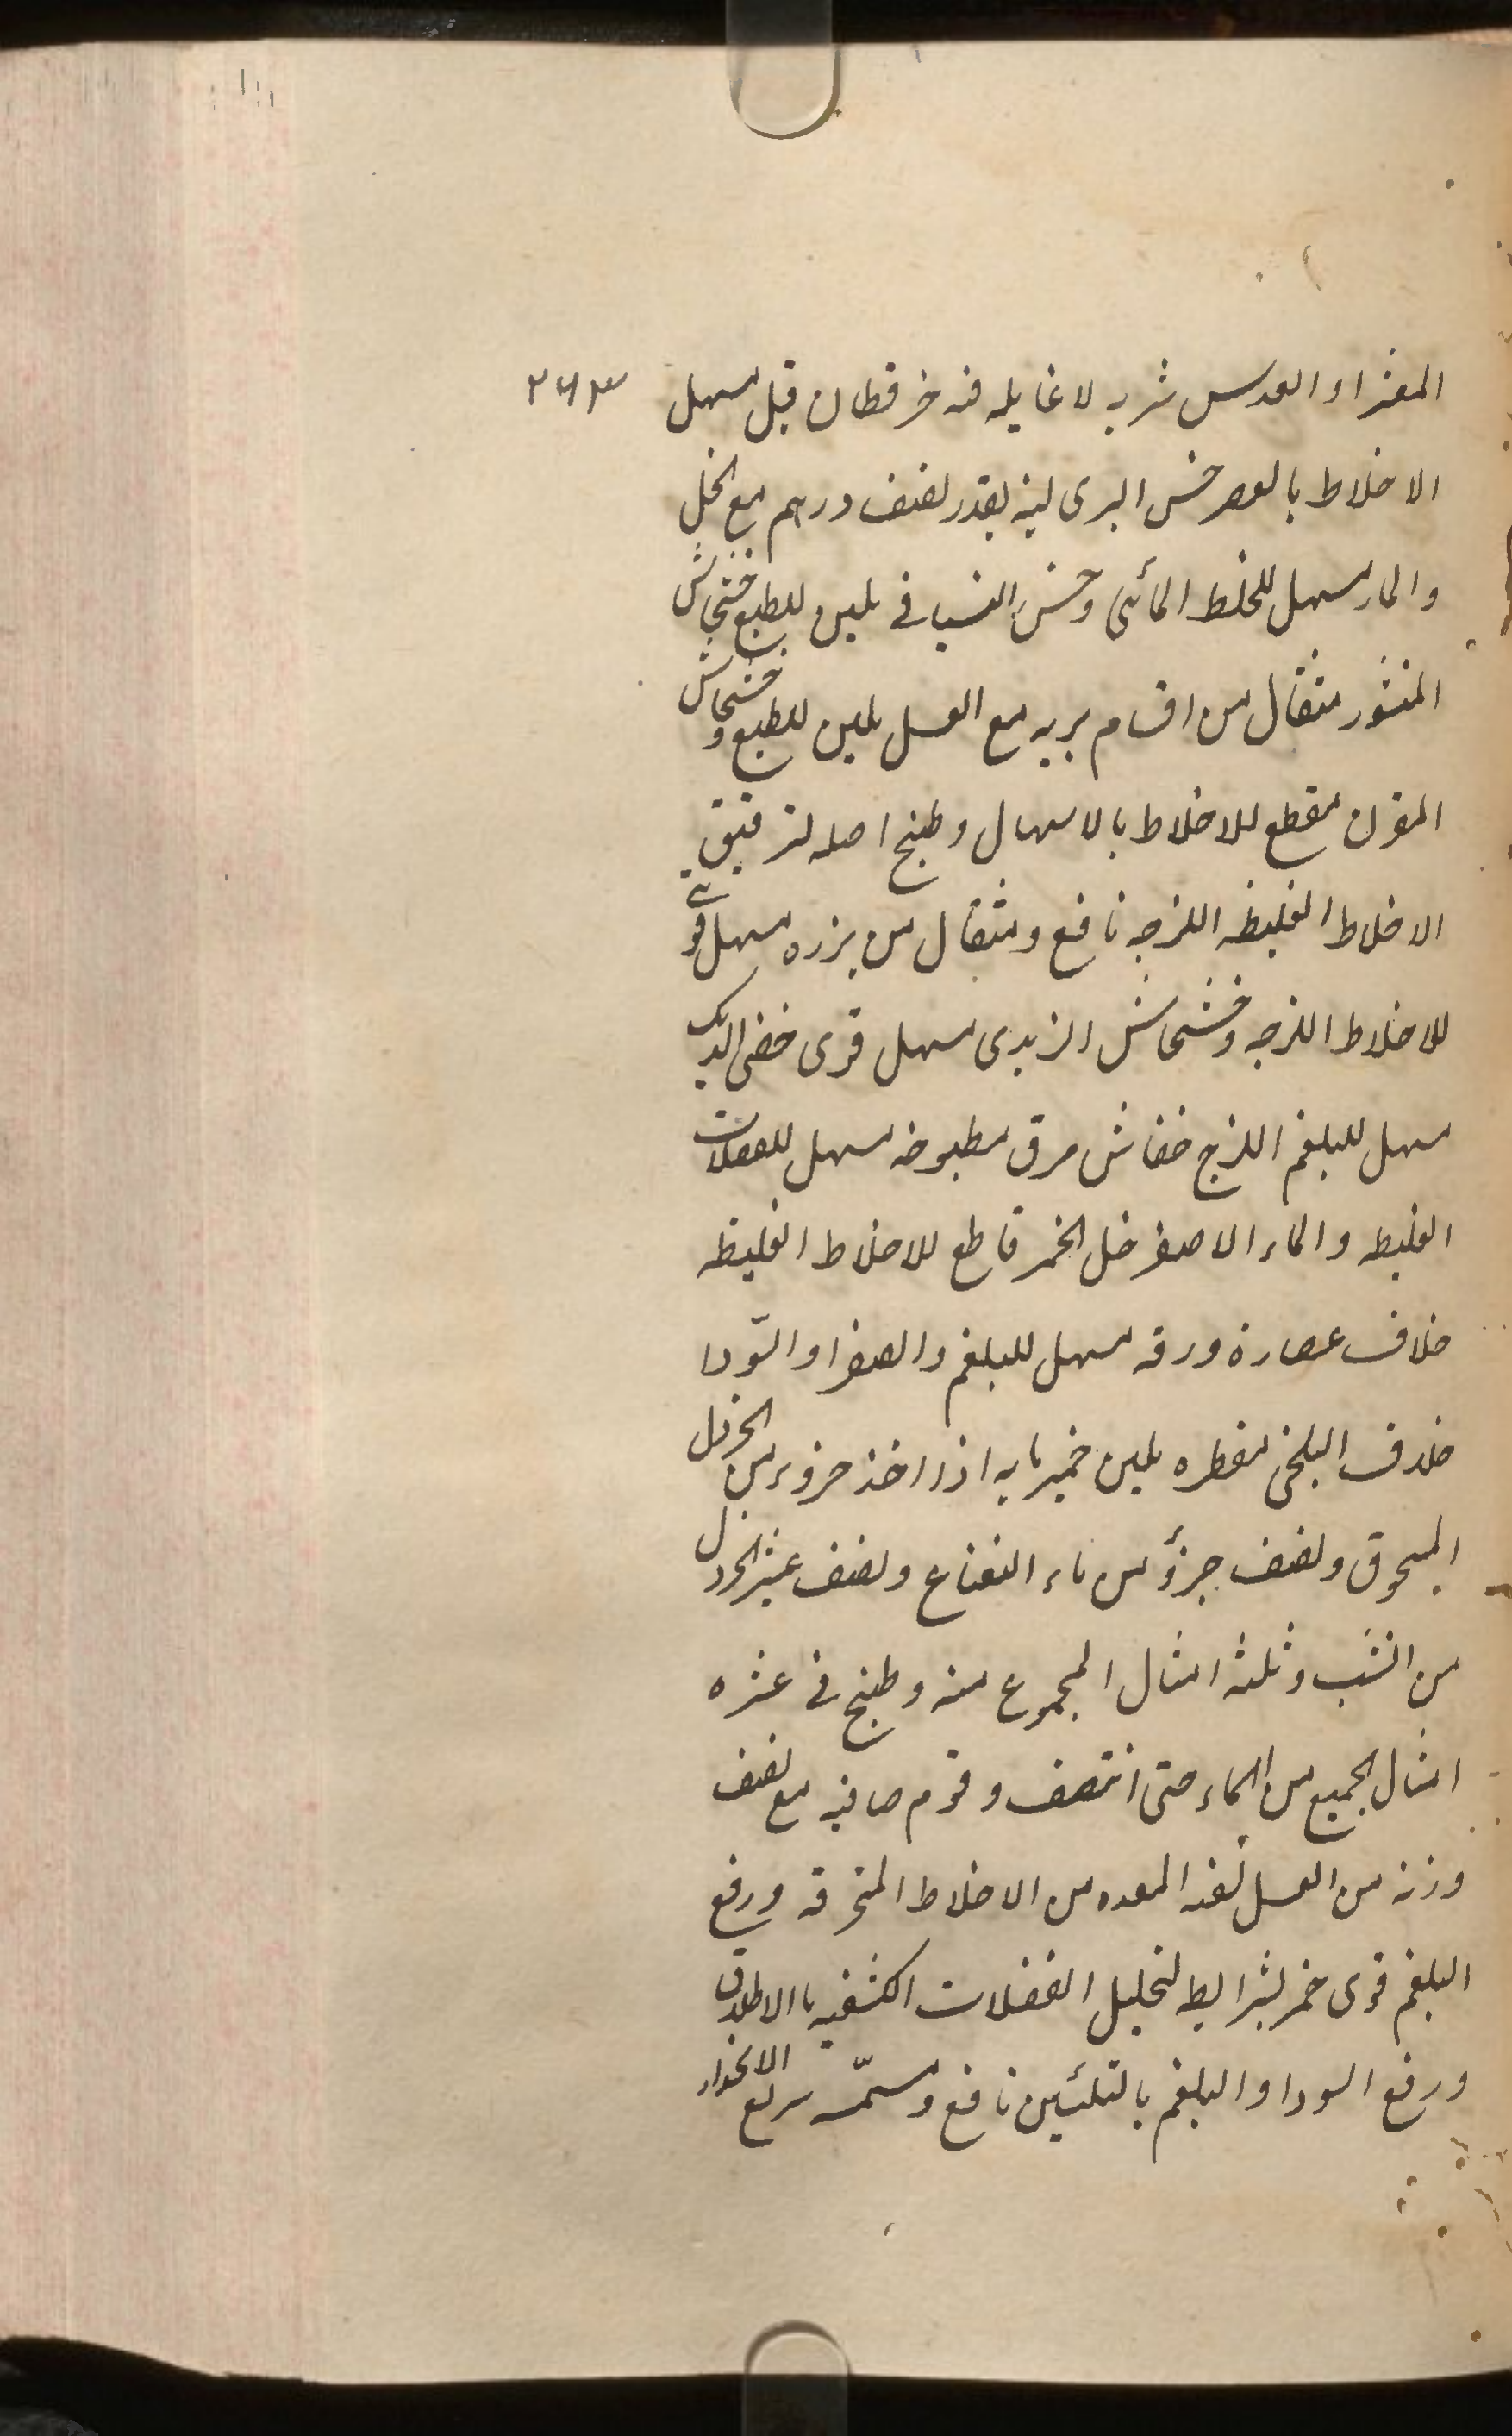 المغز او العدس شربه لا غایله فیه خرقطان قیل مسهل
۲۶۳
الاخلاط بالعصر خس البری لبنه بقدر نصف درهم مع الخل
والماء مسهل للخلط المائی وخس البستانی ملین للطبع خشخاش
المنثور مثقال من اقسام بریه مع العسل ملین للطبع و خشخاش
المقرن مقطع للاخلاط بالاسهال وطبیخ اصله لترقیق
الاخلاط الغلیظه اللزجه نافع ومثقال من بزره مسهل قوی
للاخلاط اللزجه وخشخاش الزبدی مسهل قوی خصی الدیک
مسهل للبلغم اللزج خفاش مرق مطبوخه مسهل للفضلات
الغلیظه والماء الاصفر خل الخمر قاطع للاخلاط الغلیظه
خلاف عصارة ورقه مسهل للبلغم والصفرا والسّودا
خلاف البلخی مقطره ملین خمیرمایه اذا اخذ جزوء من الخردل
المسحوق ونصف جزؤ من ماء النعناع ونصف عشر الخردل
من الشب وثلثة امثال المجموع منه وطبخ فی عشره
امثال الجمیع من الماء حتی انتصف وقوم صافیه مع نصف
وزنه من العسل المعده من الاخلاط المحترقه ورفع
البلغم قوی خمر بشرایط لتحلیل الفضلات الکثیفه بالاطلاق
ورفع السودا والبلغم بالتلئین نافع و سریع الانحدار